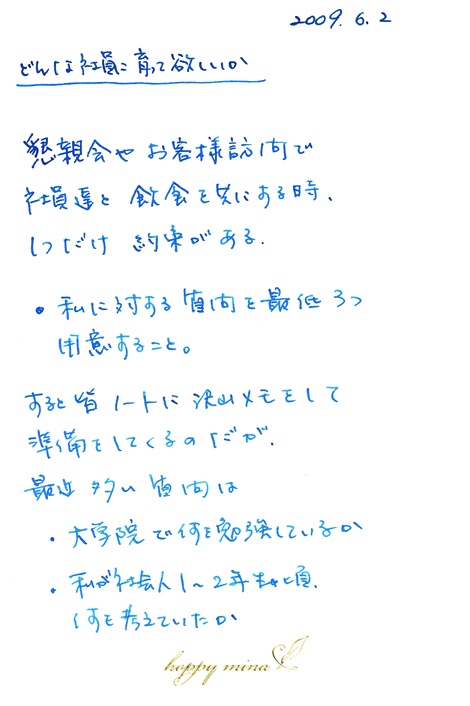 2009. 6. 2
どんな社員に育って欲しいか
懇親会や お客様訪問で
社員達と 飲食を共にする時、
1つだけ 約束がある.
• 私に対する質問を最低3つ
用意すること。
すると皆ノートに沢山メモをして
準備をしてくるのだが、
最近 多い 質問は
・大学院で何を勉強しているか
・私が社会人1〜2年生の頃、
何を考えていたか
happy mina